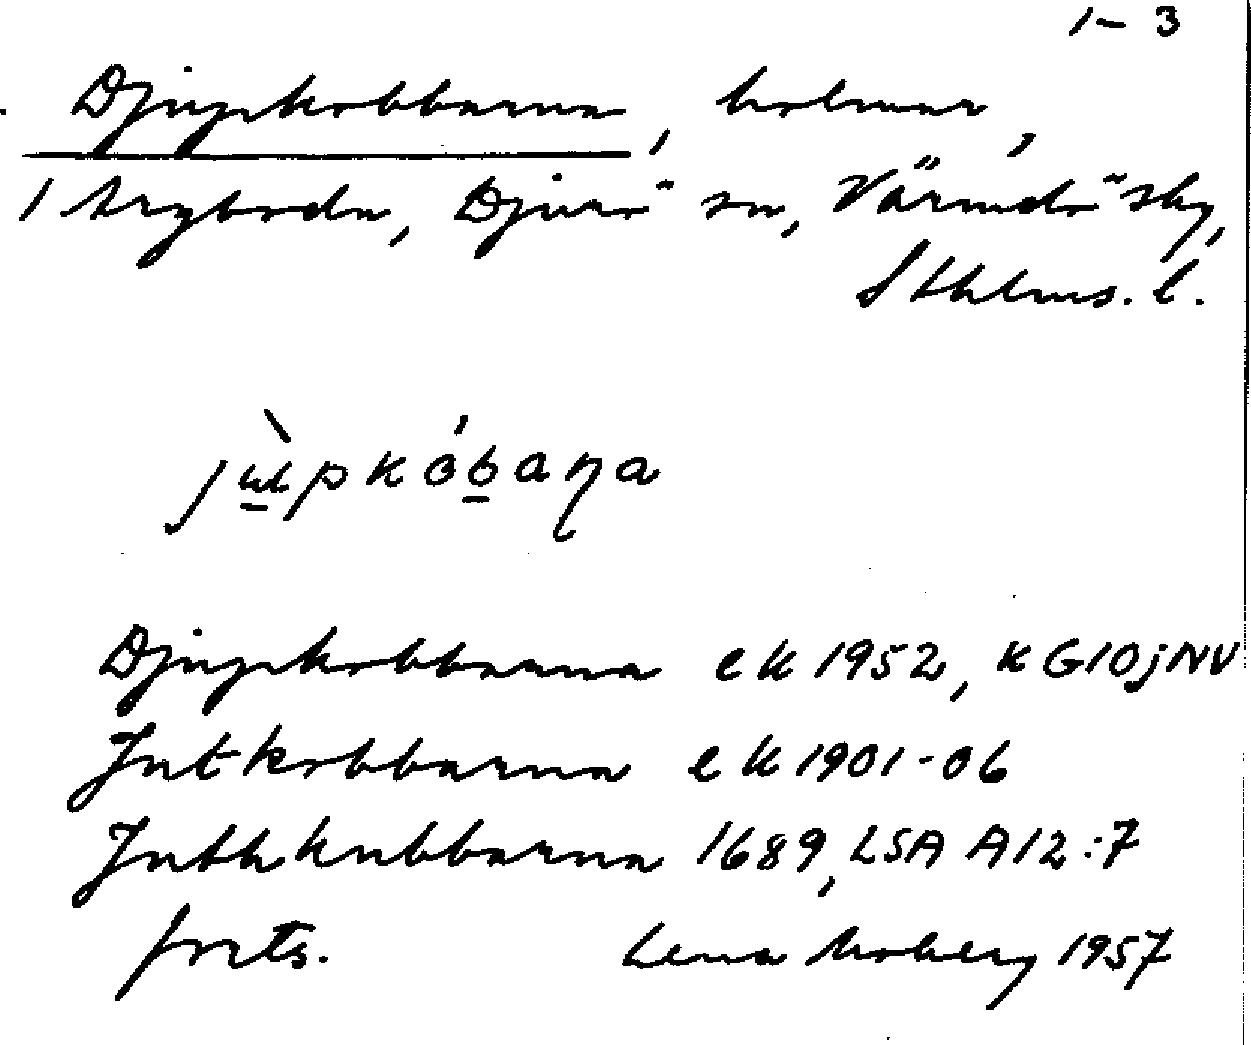 1-3
Djupkobbarna, holmar,
Djurö sn, Värmdö skg,
Sthlms. l.
Djupkobbarna ek 1952, K G10jNV
Jutkobbarna ek 1901-06
Juthkubbarna 1689, LSA A12:7
forts. Lena Moberg 1957